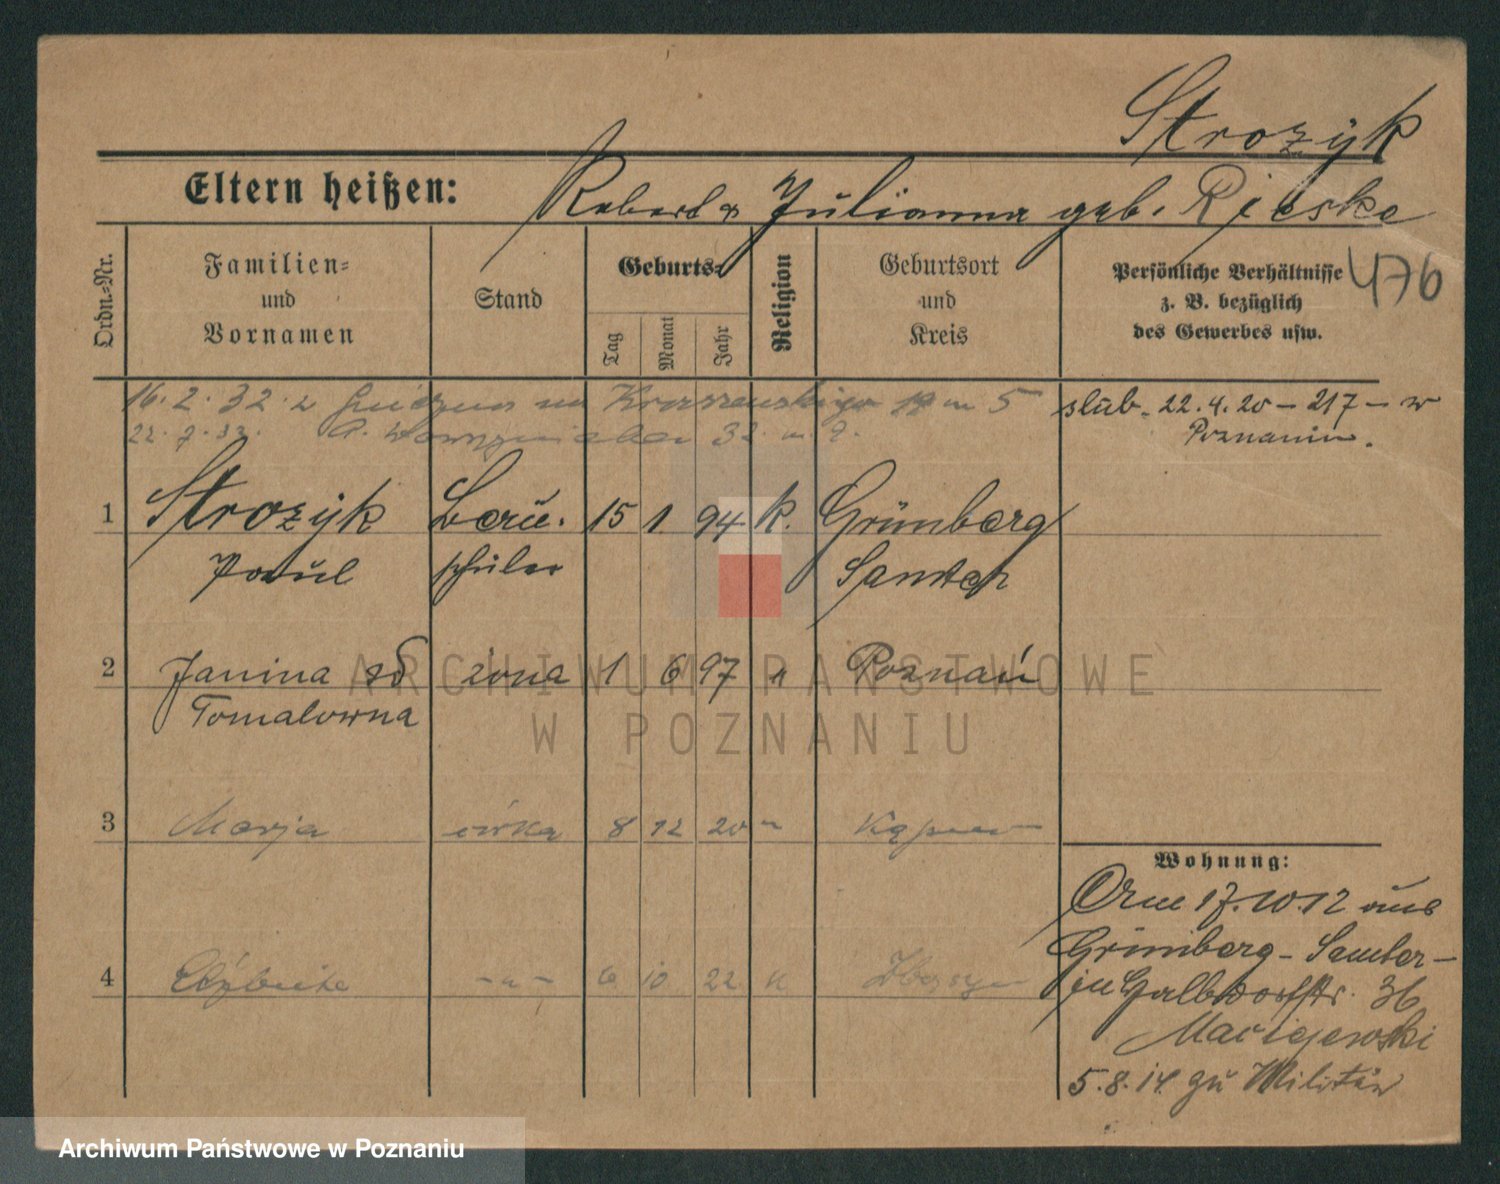 Strozyk
Eltern heißen: Robert & Julianna geb. Rieske
Ordn.-Nr.
Familien-
und
Vornamen
Stand
Geburts-
Tag
Monat
Jahr
Religion
Geburtsort
und
Kreis
Persönliche Verhältnisse
z. B. bezüglich
des Gewerbes usw.
476
16.2.32 z m 5
22.7.33. 32 m. 9.
slub. 22.4.20 – 217 – w
Poznaniu.
1 Strozyk Bau- 15 1. 94 k. Grünberg
Paul schüler Samter
2 Janina zd żona 1 6 97 " Poznań
Tomalowna
3 Marja córka 8 12 20 "
4 Elżbieta - " - 6 10 22 k
Wohnung:
17.10.12 aus
Grünberg - Samter -
in Halbdorfstr. 36
Maciejewski
5.8.14 zu Militär
ARCHIWUM PAŃSTWOWE
W POZNANIU
Archiwum Państwowe w Poznaniu